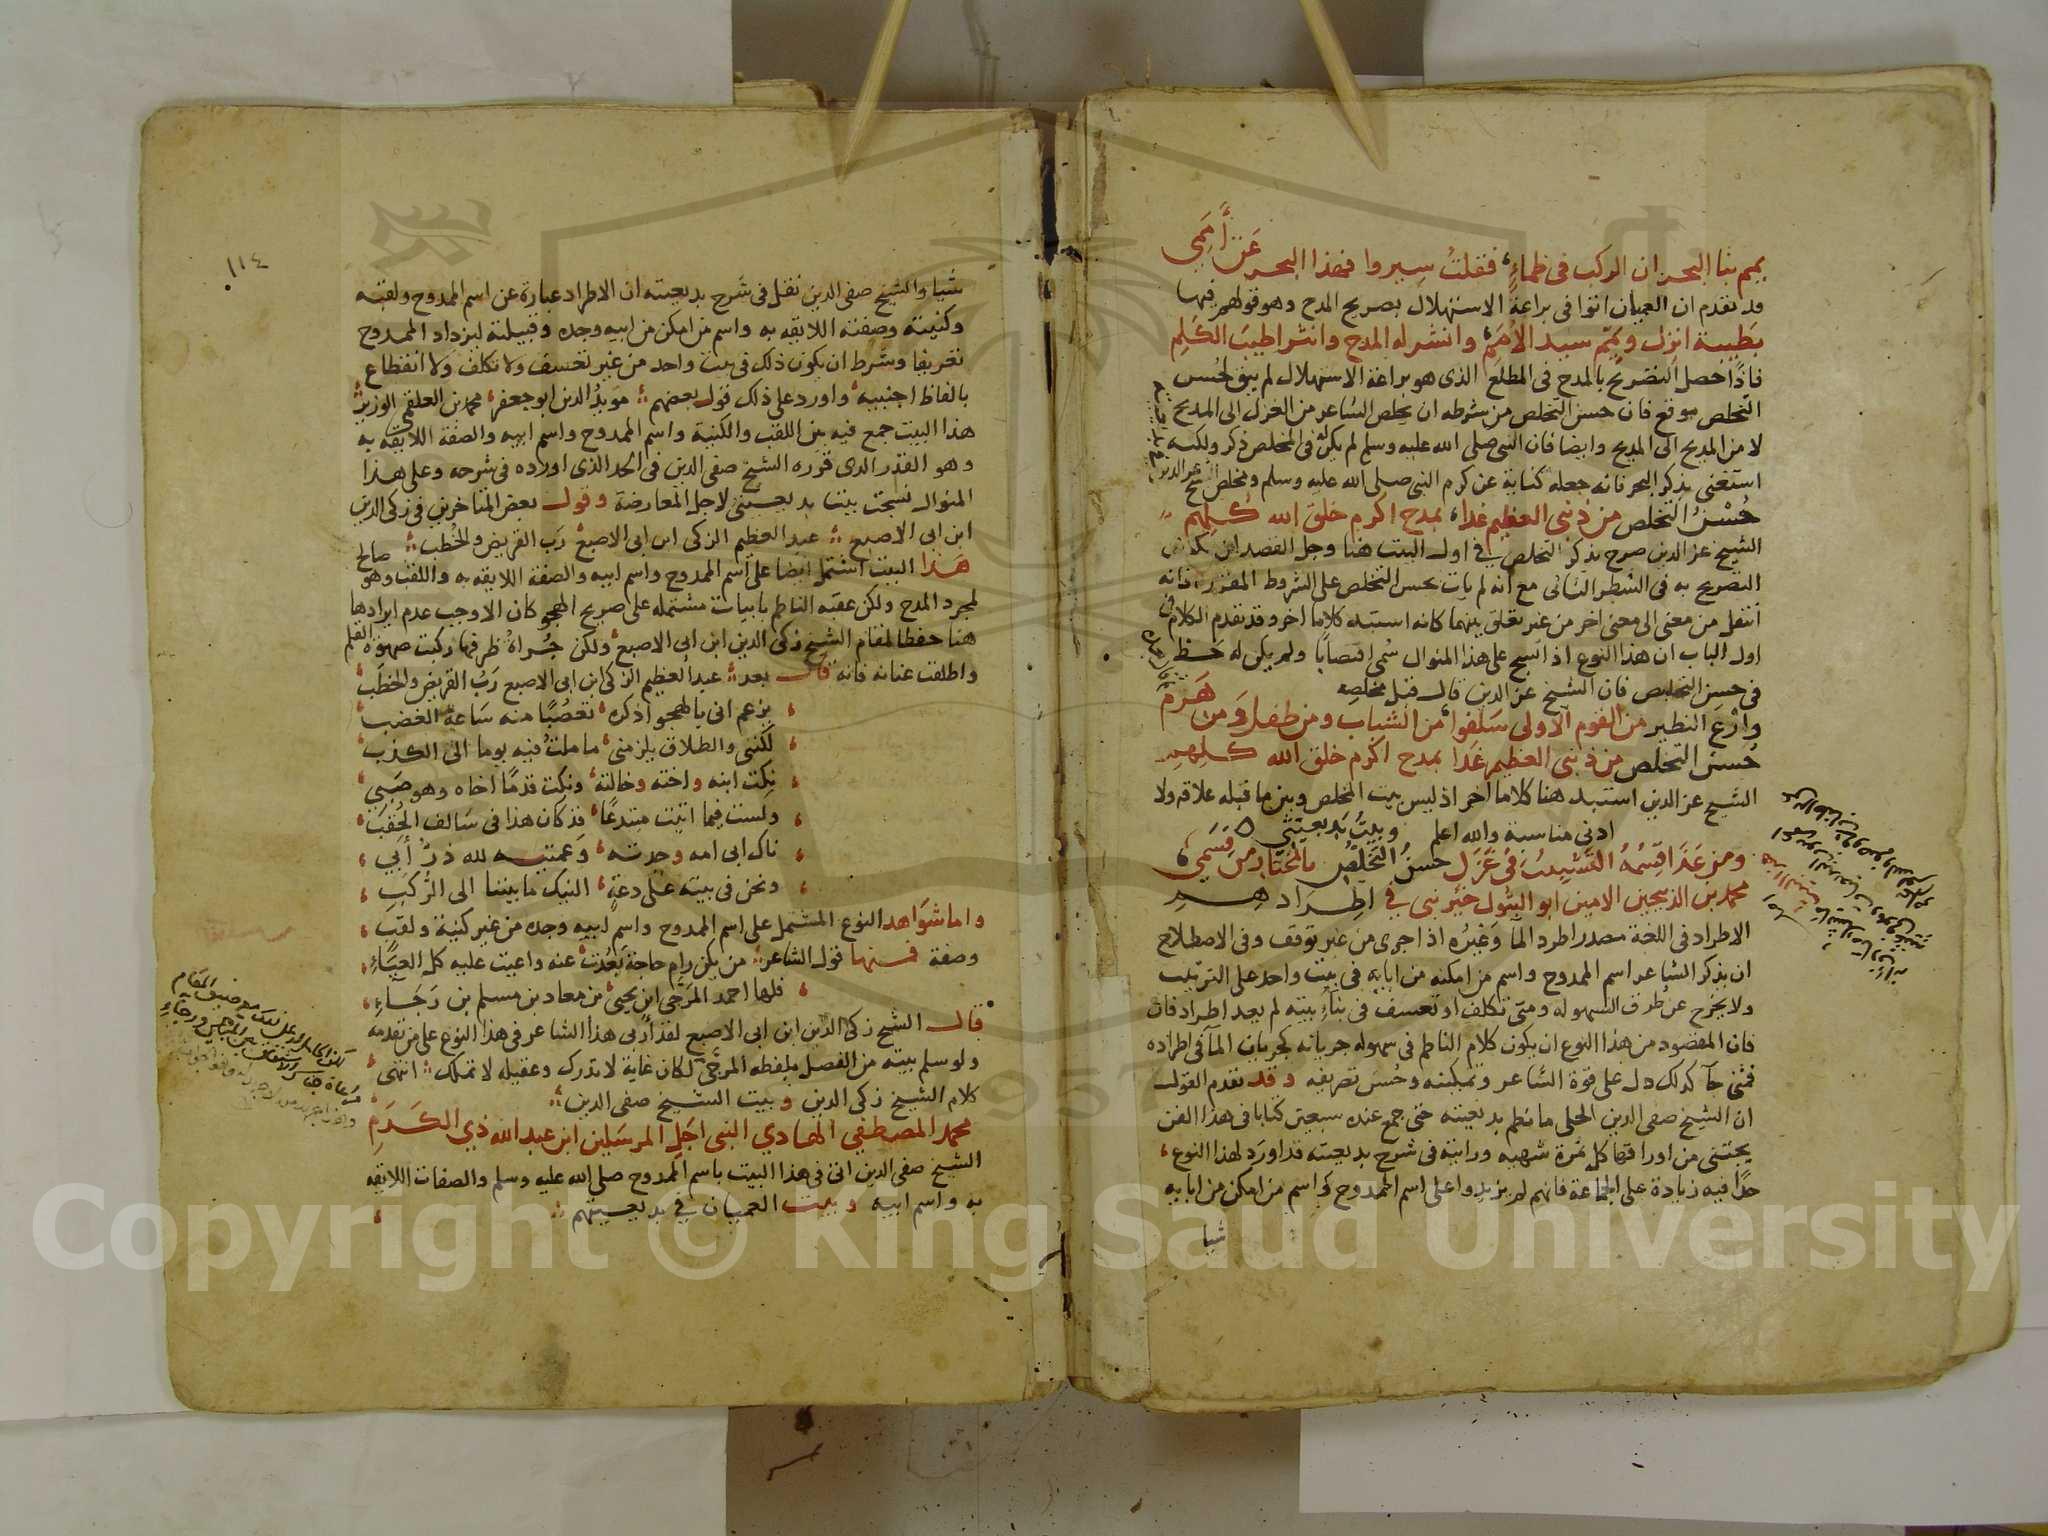 يمم بنا البحر ان الركب فى ظماء فقلت سيروا فهذا البحر عن أممى
قد تقدم ان العميان اتوا فى براعة الاستهلال بصريح المدح وهو قولهم فيها
بطيبة انزل ويمم سيد الأمم وانشر له المدح وانثر اطيب الكلم
فاذا حصل التصريح بالمدح فى المطلع الذى هو براعة الاستهلال لم يبق لحسن
التخلص موقع فان حسن التخلص من شرطه ان يخلص الشاعر من الغزل الى المديح
لا من المديح الى المديح وايضا فان النبى صلى الله عليه وسلم لم يكن له فى المخلص ذكر ولكنه
استغنى بذكر البحر فانه جعله كناية عن كرم النبى صلى الله عليه وسلم ومخلص الشيخ عز الدين
حسن التخلص من ذنبى العظيم غدا بمدح اكرم خلق الله كلهم
الشيخ عز الدين صرح بذكر التخلص فى اول البيت هنا وجل القصد ان يكون
التصريح به فى الشطر الثانى مع انه لم يات بحسن التخلص على الشروط المقررة فانه
انتقل من معنى الى معنى اخر من غير تعلق بينهما كانه استبد كلاما اخر وقد تقدم الكلام فى
اول الباب ان هذا النوع اذا نسج على هذا المنوال سمى اقتضابا ولم يكن له حظ
فى حسن التخلص فان الشيخ عز الدين قال قبل مخلصه
وارع النظير من القوم الاولى سلفوا من الشباب ومن طفل ومن هرم
حسن التخلص من ذنبى العظيم غدا بمدح اكرم خلق الله كلهم
الشيخ عز الدين استبد هنا كلاما اخر اذ ليس بيت المخلص وبين ما قبله علاقة ولا
ادنى مناسبة والله اعلم وبيت بديعيتى
ومن غدا قسمه التشبيب فى غزل حسن التخلص بالمختار من قسمى
محمد بن الذبيحين الامين ابو البتول خير نبى فى اطرادهم
الاطراد فى اللغة مصدر اطرد الما وغيره اذا جرى من غير توقف وفى الاصطلاح
ان يذكر الشاعر اسم الممدوح واسم من امكنه من ابايه فى بيت واحد على الترتيب
ولا يخرج عن طرق السهولة ومتى تكلف او تعسف فى بناء بيته لم يعد اطرادا فان
فان المقصود من هذا النوع ان يكون كلام الناظم فى سهولة جريانه كجريان الما فى اطراده
فمتى جآ كذلك دل على قوة الشاعر وتمكينه وحسن تصريفه وقد تقدم القول
ان الشيخ صفى الدين الحلى ما نظم بديعيته حتى جمع عنده سبعين كتابا فى هذا الفن
يجتنى من اوراقها كل ثمرة شهية ورايته فى شرح بديعيته قد اورد لهذا النوع
حدا فيه زيادة على الجماعة فانهم لم يزيدوا على اسم الممدوح واسم من امكن من ابايه
شيا
١١٤
شيا والشيخ صفى الدين نقل فى شرح بديعيته ان الاطراد عبارة عن اسم الممدوح ولقبه
وكنيته وصفته اللايقه به واسم من امكن من ابيه وجده وقبيلته ليزداد الممدوح
تعريفا وشرط ان يكون ذلك فى بيت واحد من غير تعسف ولا تكلف ولا انقطاع
بالفاظ اجنبيه واورد على ذلك قول بعضهم مويد الدين ابو جعفر محمد بن العلقمى الوزير
هذا البيت جمع فيه بين اللقب والكنية واسم الممدوح واسم ابيه والصفة اللايقه به
وهو القدر الذى قرره الشيخ صفى الدين فى الحد الذى اورده فى شرحه وعلى هذا
المنوال نسجت بيت بديعيتى لاجل المعارضة وقول بعض المتاخرين فى زكى الدين
ابن ابى الاصبع عبد العظيم الزكى ابن ابى الاصبع رب القريض والخطب
هذا البيت اشتمل ايضا على اسم الممدوح واسم ابيه والصفة اللايقه به واللقب وهو صالح
لمجرد المدح ولكن عقبه الناظم بابيات مشتمله على صريح الهجو كان الاوجب عدم ايرادها
هنا حفظا لمقام الشيخ زكى الدين ابن ابى الاصبع ولكن جراة ظرفها ركبت صهوة القلم
واطلقت عنانه فانه قال بعد عبد العظيم الزكى ابن ابى الاصبع رب القريض والخطب
يزعم انى بالهجو اذكره تعصبا منه ساعة الغضب
لكننى والطلاق يلزمنى ما ملت فيه يوما الى الكذب
نكت ابنه واخته وخالته ونكت قدما اخاه وهو صبى
ولست فيما اتيت مبتدعا قد كان هذا فى سالف الحقب
ناك ابى امه وجدته وعمتيه لله در أبي
ونحن فى بيته على دعة النيك ما بيننا الى الركب
واما شواهد النوع المشتمل على اسم الممدوح واسم ابيه وجده من غير كنية ولقب
وصفة فمنها قول الشاعر من يكن رام حاجة بعدت عنه واعيت عليه كل العياء
فلها احمد المرجى ابن يحيى بن معاذ بن مسلم بن رجاء
قال الشيخ زكى الدين ابن ابى الاصبع لقد اربى هذا الشاعر فى هذا النوع على من تقدمه
ولو سلم بيته من الفصل بلفظه المرجى لكان غاية لا تدرك وعقيلة لا تملك انتهى
كلام الشيخ زكى الدين وبيت الشيخ صفى الدين
محمد المصطفى الهادي النبى اجل المرسلين ابن عبد الله ذي الكرم
الشيخ صفى الدين اتى فى هذا البيت باسم الممدوح صلى الله عليه وسلم والصفات اللايقه
به واسم ابيه وبيت العميان في بديعيتهم
Copyright © King Saud University